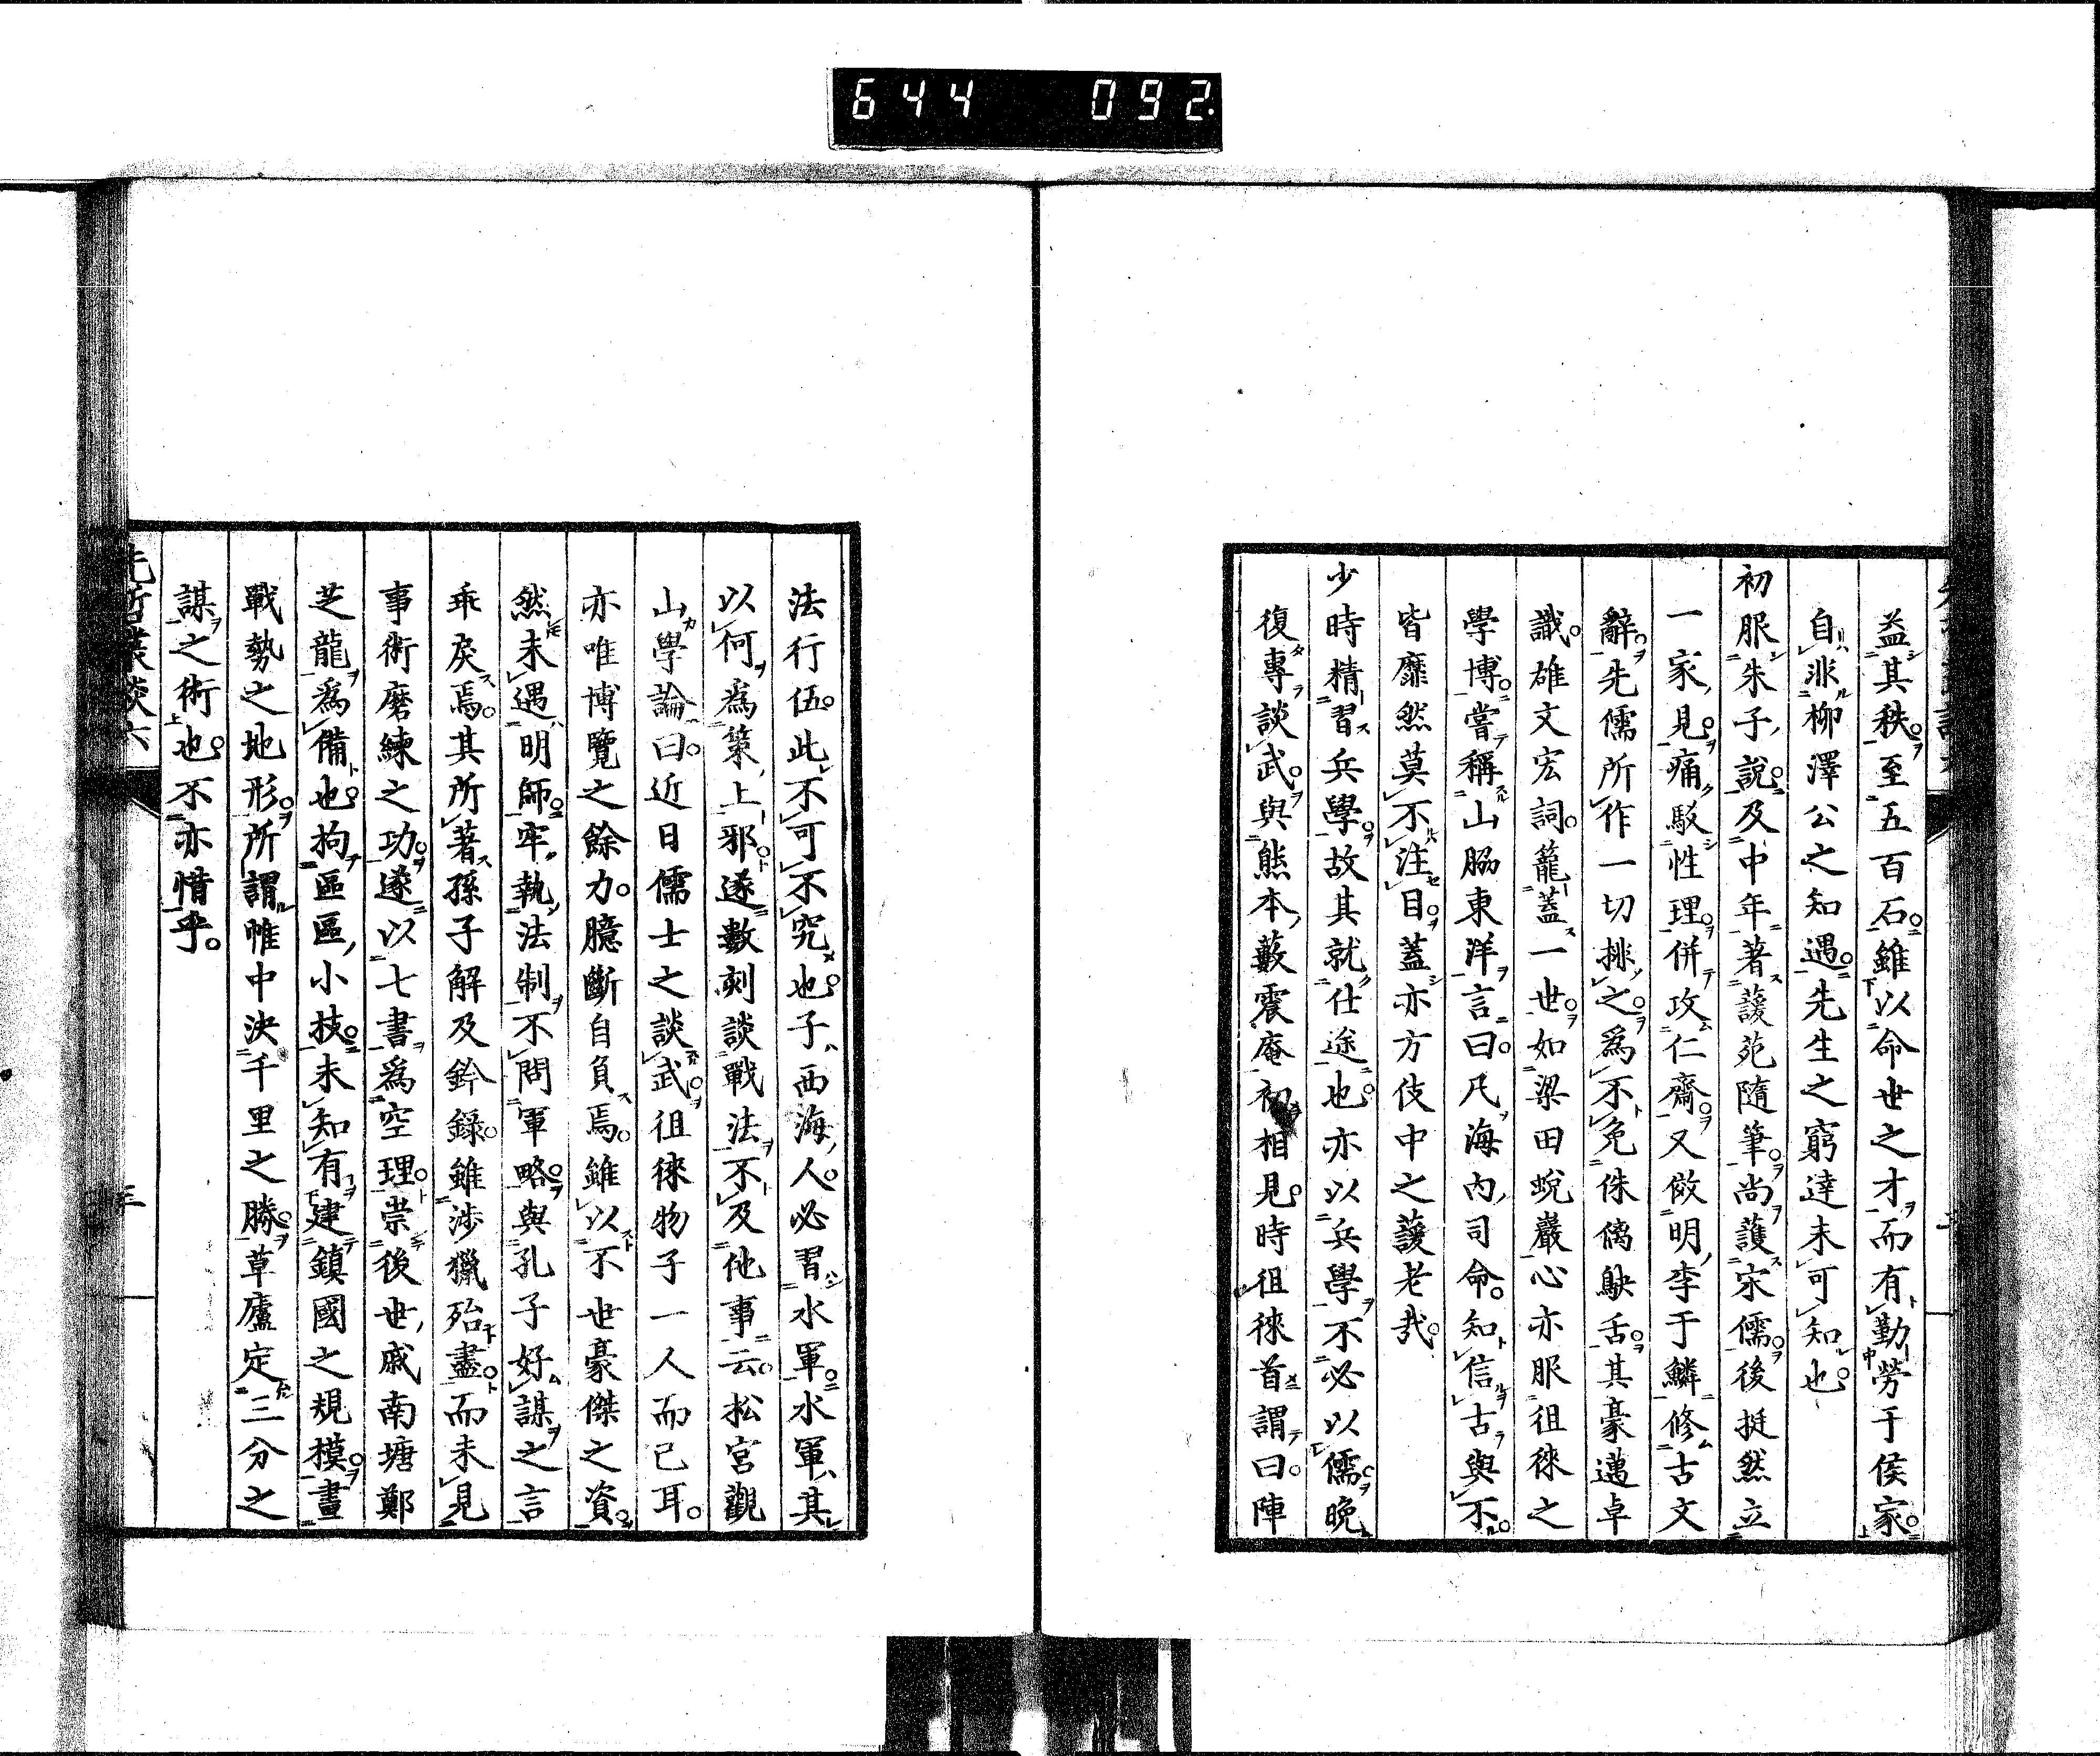 644 092
益其秩。至五百石。雖以命世之才而有勤勞于侯家。
自非柳澤公之知遇。先生之窮達未可知也。
初服朱子說。及中年著蘐苑隨筆。尚護宋儒。後挺然立
一家見。痛駁性理。併攻仁齋。又倣明李于鱗修古文
辭。先儒所作一切排之。爲不免侏僪鴃舌。其豪邁卓
識。雄文宏詞。籠蓋一世。如梁田蛻巖心亦服徂徠之
學博。嘗稱山脇東洋言曰。凡海內司命。知信古與不。
皆靡然莫不注目。蓋亦方伎中之蘐老哉。
少時精習兵學。故其就仕途也。亦以兵學。不必以儒。晚
復專談武。與熊本藪震庵初相見時。徂徠首謂曰。陣
法行伍。此不可不究也。子西海人。必習水軍。水軍其
以何爲策上邪。遂數刻談戰法。不及他事云。松宮觀
山學論曰。近日儒士之談武。徂徠物子一人而已耳。
亦唯博覽之餘力。臆斷自負焉。雖以不世豪傑之資。
然未遇明師。牢執法制。不問軍略。與孔子好謀之言
乖戾焉。其所著孫子解及鈐錄。雖涉獵殆盡。而未見
事術磨練之功。遂以七書爲空理。崇後世戚南塘鄭
芝龍爲備也。拘區區小技。未知有建鎮國之規模。畫
戰勢之地形。所謂帷中決千里之勝。草廬定三分之
謀之術也。不亦惜乎。
先哲叢談六